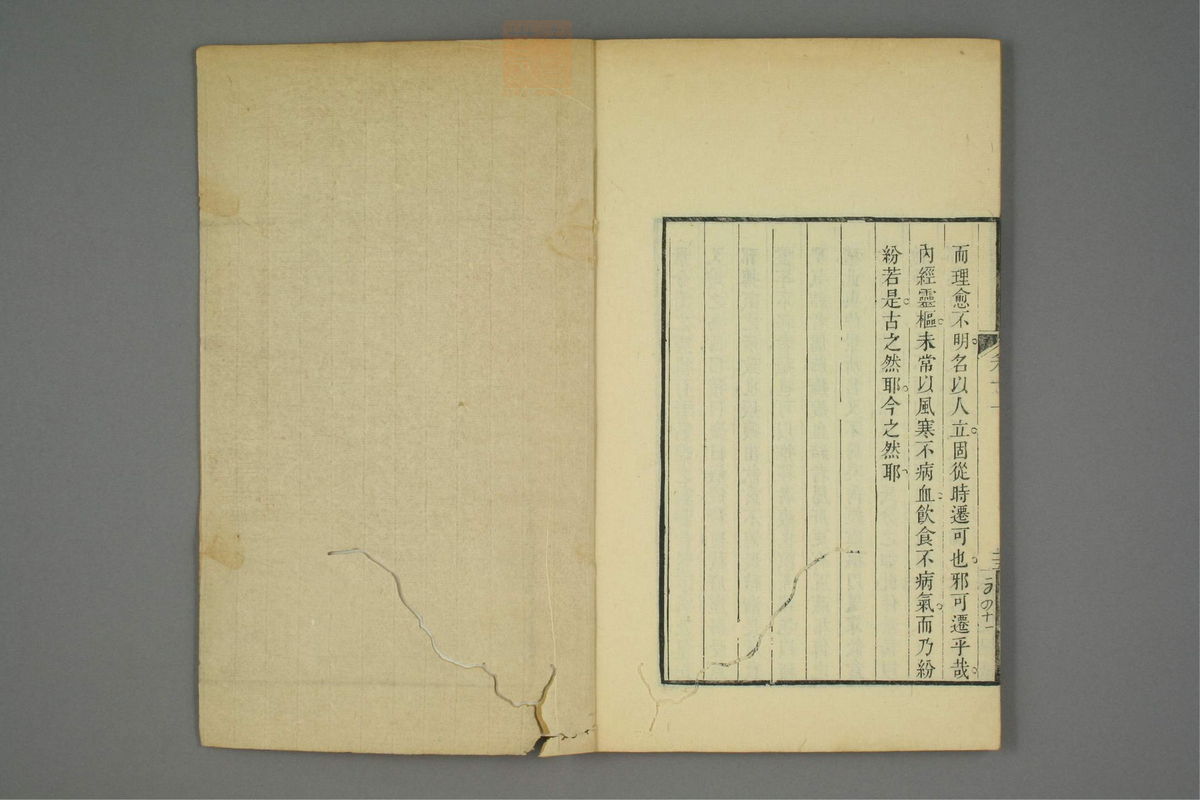 而理愈不明。名以人立。固從時遷可也。邪可遷乎哉。
內經靈樞。未常以風寒不病血。飲食不病氣。而乃紛
紛若是。古之然耶。今之然耶。